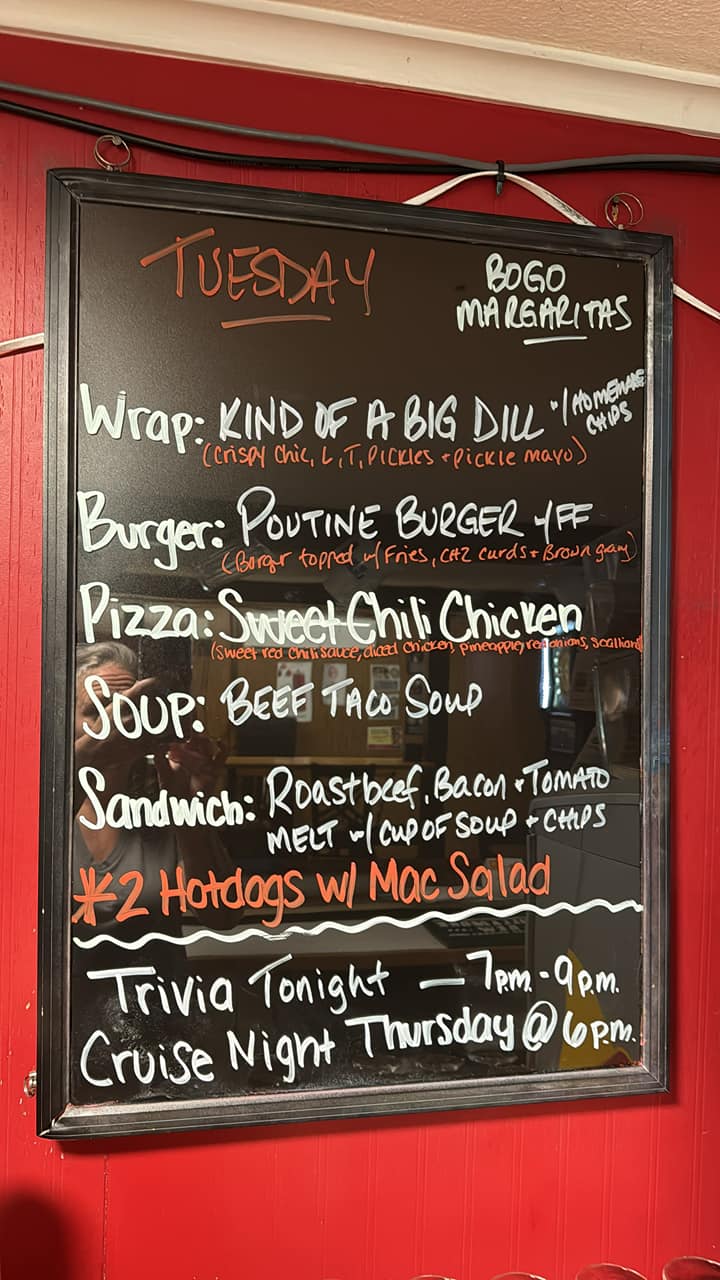 TUESDAY
BOGO
MARGARITAS
Wrap: KIND OF A BIG DILL w/ HOMEMADE
CHIPS
(Crispy Chic, L, T, Pickles + pickle mayo)
Burger: POUTINE BURGER w/ FF
(Burger topped w/ Fries, CHZ curds + Brown gravy)
Pizza: Sweet Chili Chicken
(Sweet red chili sauce, diced chicken, pineapple, red onions, Scallions)
Soup: BEEF TACO SOUP
Sandwich: Roastbeef, Bacon + TOMATO
MELT w/ CUP OF SOUP + CHIPS
*2 Hotdogs w/ Mac Salad
Trivia Tonight — 7p.m. - 9p.m.
Cruise Night Thursday @ 6p.m.